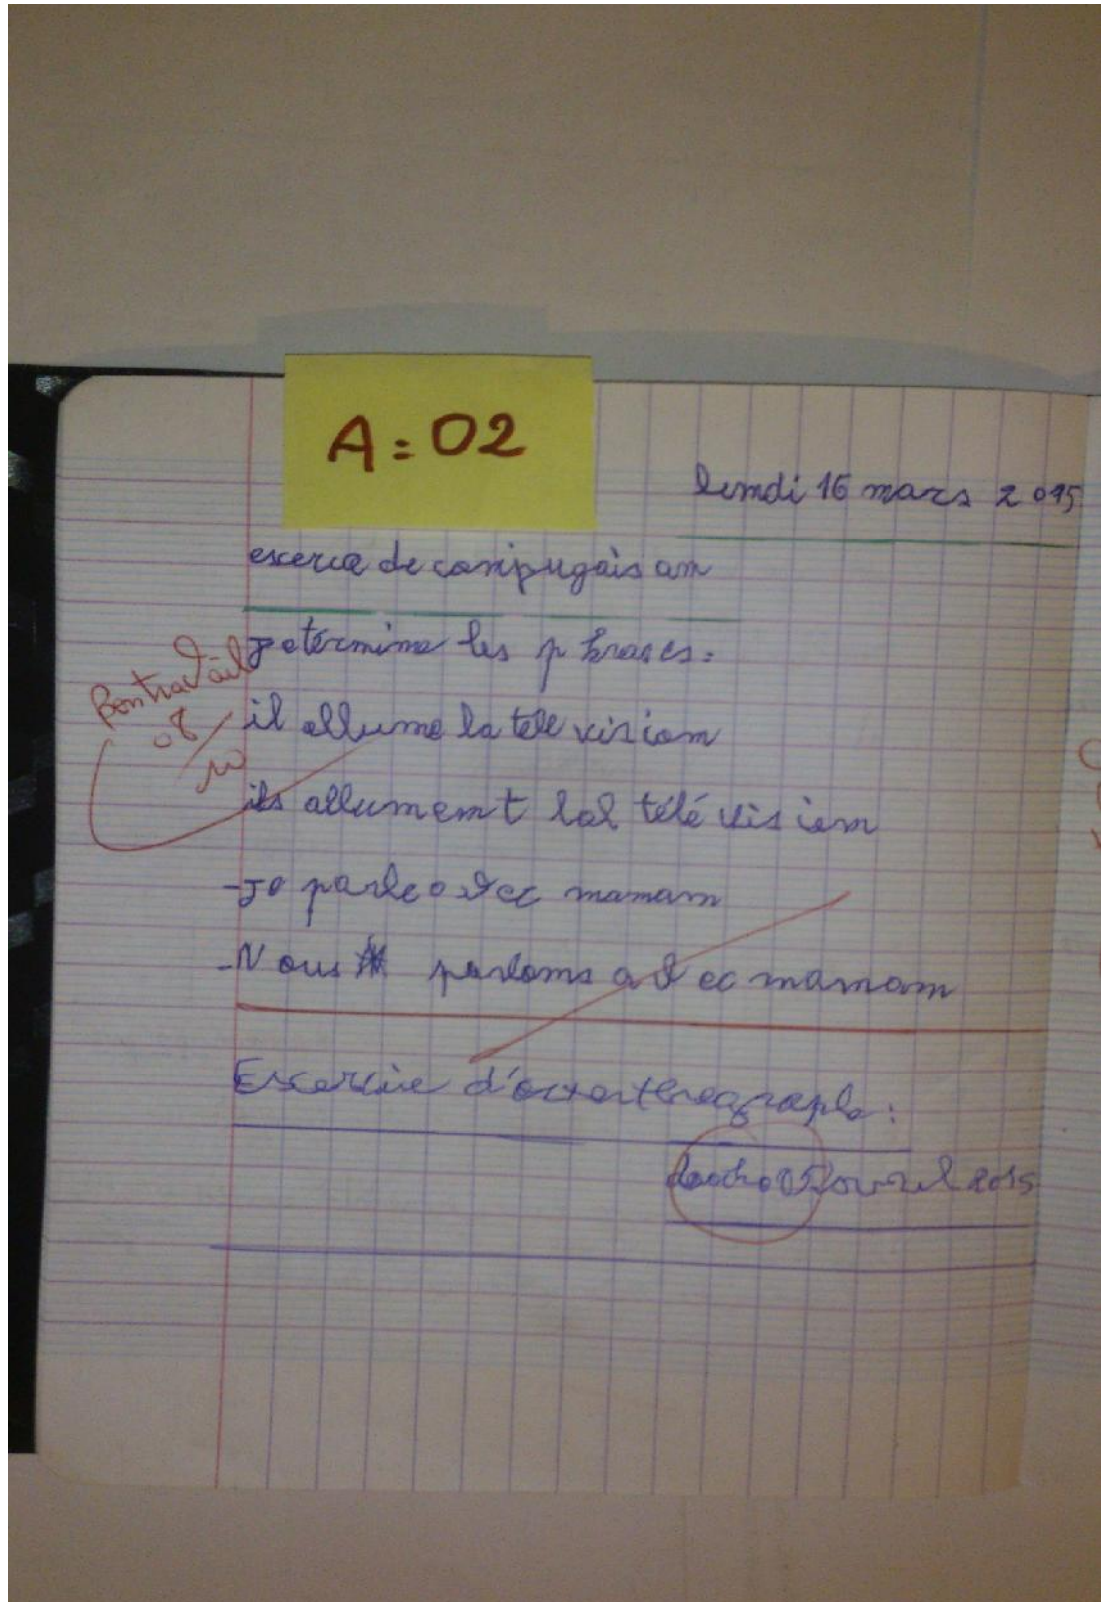 A = 02
lundi 16 mars 2015
excerce de conjugaison
je termine les phrases :
Bon travail
08/10
il allume la télé vision
ils allument lal télé vision
- Je parle avec maman
- Nous parlons avec maman
Excercice d'orthographe :
2015